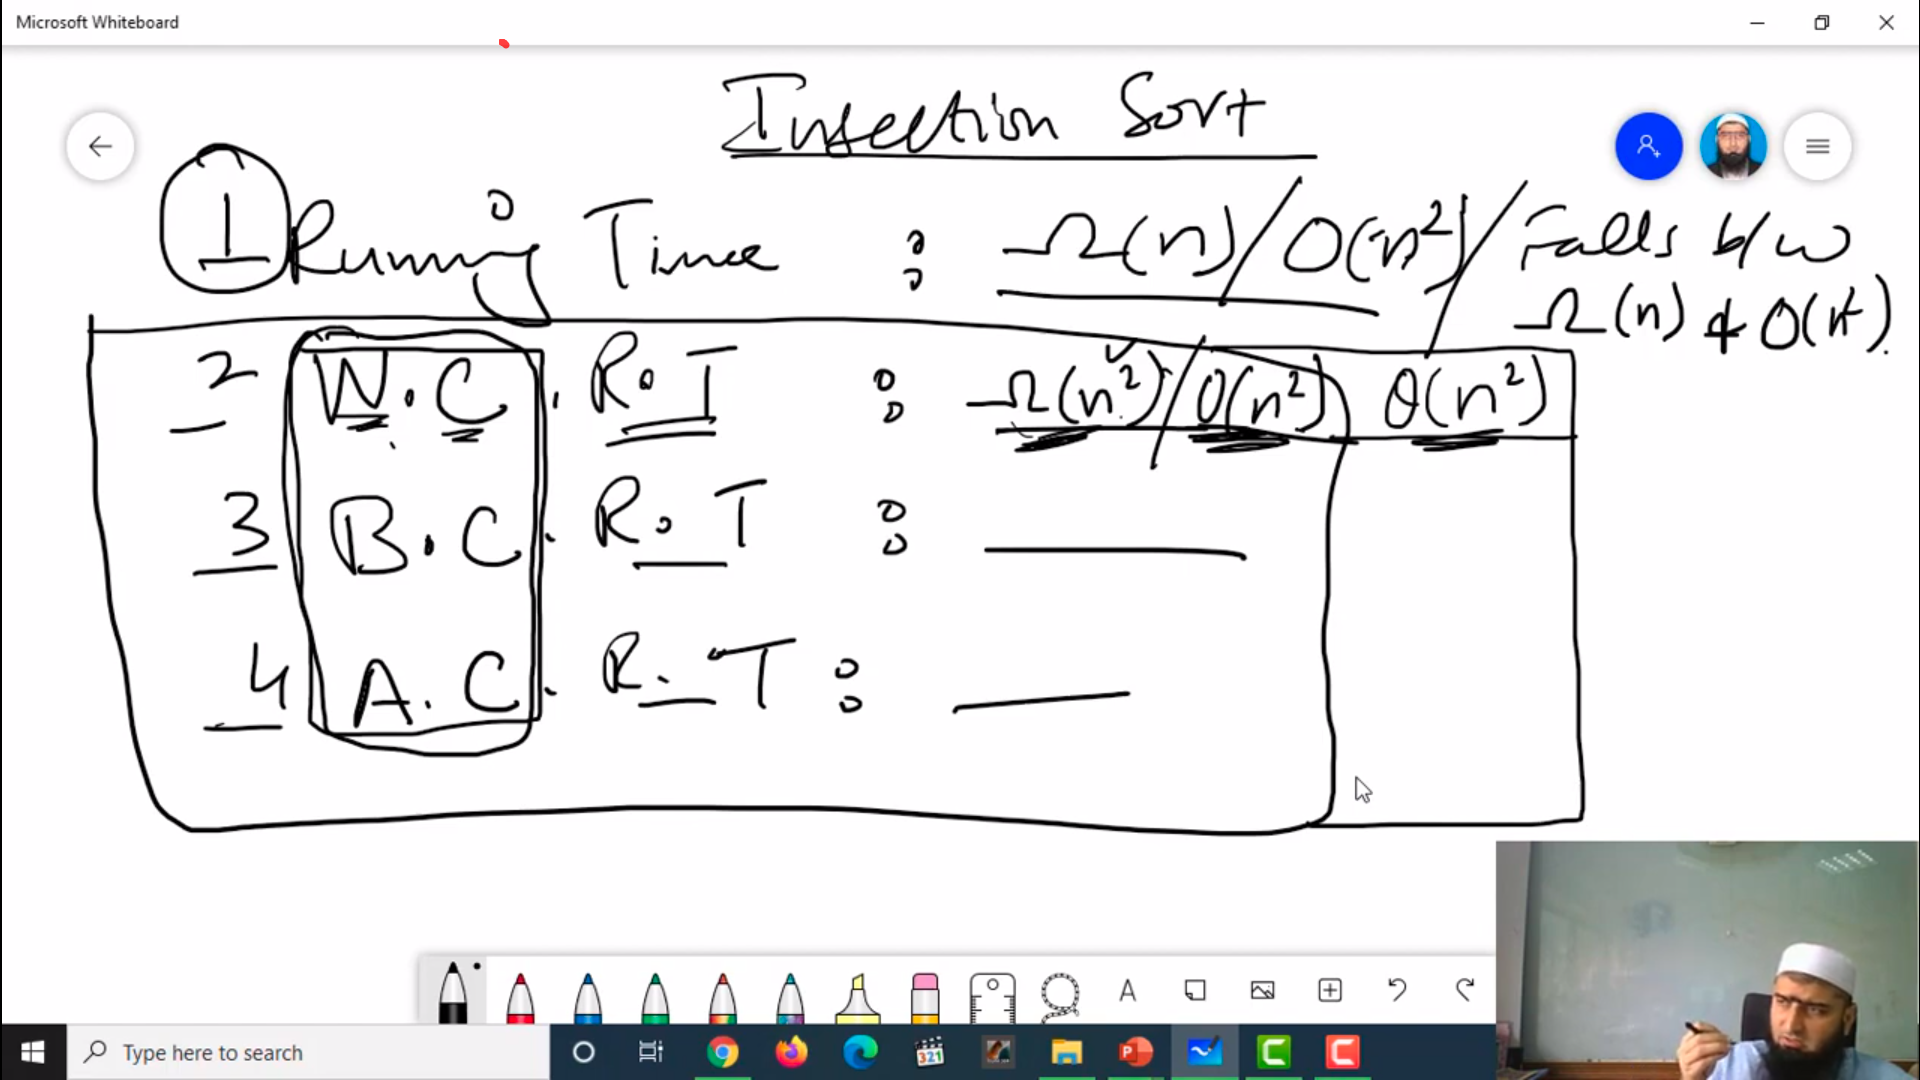 Microsoft Whiteboard
Insertion Sort
1 Running Time : Ω(n) / O(n²) / Falls b/w
Ω(n) & O(n²).
2 W.C. R.T : Ω(n²) / O(n²) θ(n²)
3 B.C. R.T :
4 A.C. R.T :
A
321
P
C
C
Type here to search